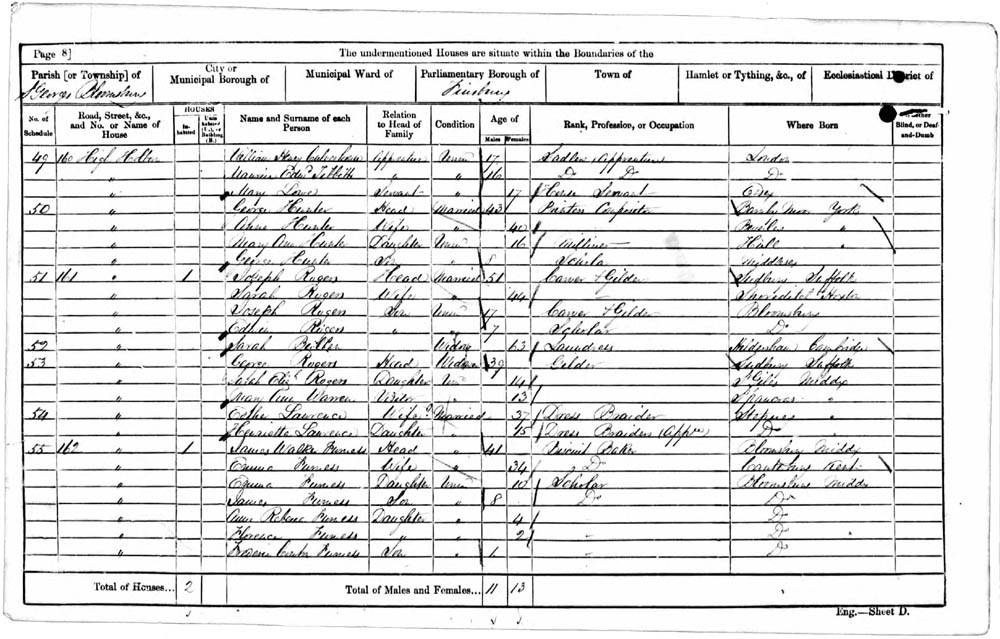 Page 8]
The undermentioned Houses are situate within the Boundaries of the
Parish [or Township] of
City or Municipal Borough of
Municipal Ward of
Parliamentary Borough of
Town of
Hamlet or Tything, &c., of
Ecclesiastical District of
St Georges Bloomsbury
Finsbury
No. of Schedule
Road, Street, &c., and No. or Name of House
HOUSES
Inhabited
Name and Surname of each Person
Relation to Head of Family
Condition
Age of
Males Females
Rank, Profession, or Occupation
Where Born
Blind, or Deaf-and-Dumb
49 160 High William Apprentice Unm 17 Sadler Apprentice London
" " " 16 Do Do Do
" Mary Lowe Servant " 17 House Servant
50 " George Hunter Head Married 43 Compositor York
" Anne Hunter Wife " 40 "
" Mary Ann Daughter Unm 16 Milliner Hull "
" George Son 8 Scholar Middlesex
51 161 " 1 Joseph Rogers Head Married 51 Carver & Gilder Sudbury Suffolk
" Sarah Rogers Wife " 44 -
" Joseph Rogers Son Unm 17 Carver & Gilder Bloomsbury
" Edwin Rogers " " 7 Scholar Do
52 " Sarah Butler Widow 63 Laundress
53 " George Rogers Head Widower 39 Gilder Sudbury Suffolk
" Rogers Daughter Unm 14 St Giles Middx
" Mary Ann Warren Visitor " 13 St Pancras "
54 " Esther Laurence Wife Married 37 Dress Braider "
" Henrietta Laurence Daughter " 15 Dress Braider (Appre) Do
55 162 " 1 James Walter Furness Head " 41 Biscuit Baker Bloomsbury Middx
" Emma Furness Wife " 34 Do Canterbury Kent
" Emma Furness Daughter Unm 10 Scholar Bloomsbury Middx
" James Furness Son " 8 Do Do
" Furness Daughter " 4 Do
" Florence Furness " " 2 - Do
" Furness Son " 1 - Do
Total of Houses... 2
Total of Males and Females... 11 13
Eng.—Sheet D.